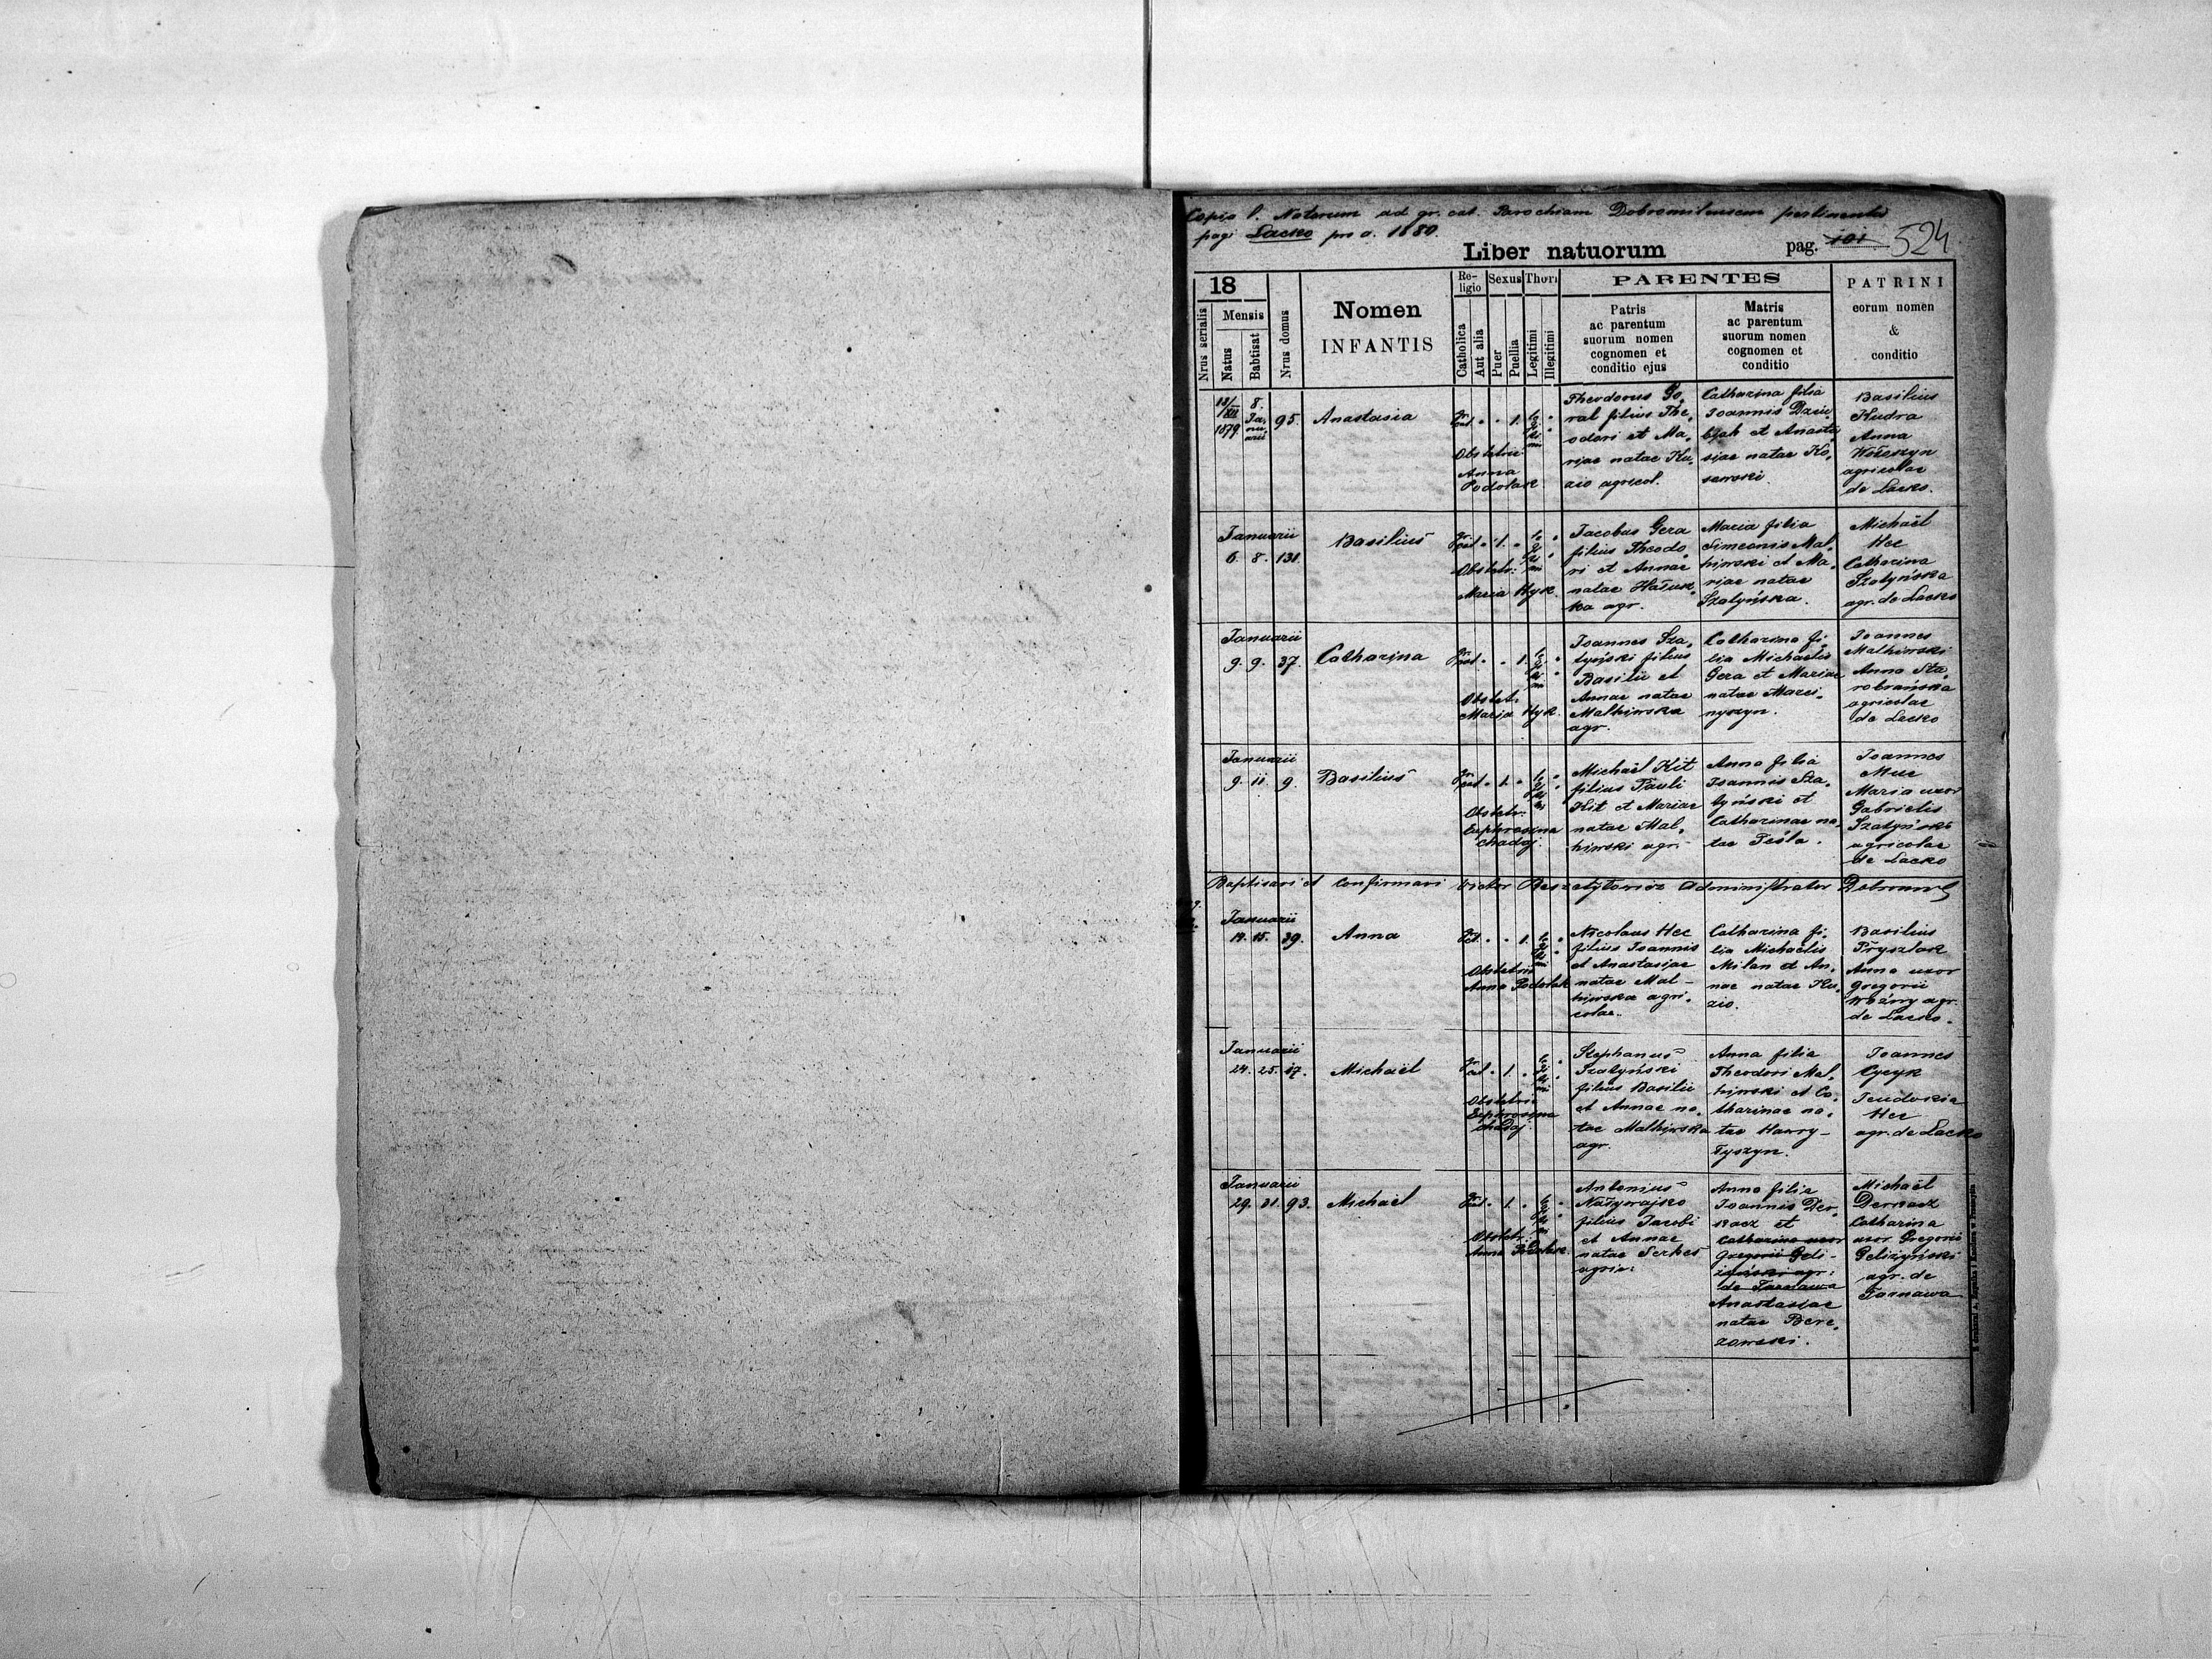 Copia l. Natorum ad gr. cat. Parochiam Dobromilensem pertinentis
pagi Lacko pro a. 1880.
Liber natuorum
pag. 101 524
18
Nrus serialis
Mensis
Natus
Babtisat
Nrus domus
Nomen
INFANTIS
Religio
Catholica
Aut alia
Sexus
Puer
Puella
Thori
Legitimi
Illegitimi
PARENTES
Patris
ac parentum
suorum nomen
cognomen et
conditio ejus
Matris
ac parentum
suorum nomen
cognomen et
conditio
PATRINI
eorum nomen
&
conditio
18/XII 1879
8. Januarii
95.
Anastasia
1.
Obstetric:
Anna
Podolak
Theodorus Go,
ral filius The,
odori et Ma,
riae natae Ku,
zio agricol.
Catharina filia
Joannis Dziu,
bjak et Anasta
siae natae Ko,
sewski.
Basilius
Kudra
Anna
Wołoszyn
agricolae
de Lacko.
Januarii
6. 8. 131.
Basilius
1.
Obstetr:
Maria Hyk.
Jacobus Gera
filius Theodo,
ri et Annae
natae Hałusz,
ka agr.
Maria filia
Simeonis Mal,
hiwski et Ma,
riae natae
Szatyńska.
Michaël
Hec
Catharina
Szatyńska
agr. de Lacko
Januarii
9. 9. 37.
Catharina
1.
Obstet:
Maria Hyk.
Joannes Sza,
tyński filius
Basilii et
Annae natae
Malhiwska
agr.
Catharina fi,
lia Michaelis
Gera et Mariae
natae Marci,
nyszyn.
Joannes
Malhiwski
Anna Sta,
robrańska
agricolae
de Lacko
Januarii
9. 11. 9.
Basilius
1.
Obstetr:
Euphrosina
Chadaj.
Michaël Kit
filius Pauli
Kit et Mariae
natae Mal,
hiwski agr.
Anna filia
Joannis Sza,
tyński et
Catharinae na,
tae Teśla.
Joannes
Muc
Maria uxor
Gabrielis
Szatyński
agricolae
de Lacko
Baptisavi et confirmavi Victor Administrator Dobromil
Januarii
14. 15. 39.
Anna
1.
Obstetric
Anna Podolak
Nicolaus Hec
filius Joannis
et Anastasiae
natae Mal-
hiwska agri,
colae.
Catharina fi,
lia Michaëlis
Milan et An,
nae natae Ku,
zio.
Basilius
Prysztak
Anna uxor
Gregorii
Woźny agr.
de Lacko.
Januarii
24. 25. 17.
Michaël
1.
Obstetric
Euphrosyna
Chadaj.
Stephanus
Szatyński
filius Basilii
et Annae na,
tae Malhiwska
agr.
Anna filia
Theodori Mal,
hiwski et Ca,
tharinae na,
tae Hawry-
łyszyn.
Joannes
Cycyk
Teudokia
Hec
agr. de Lacko
Januarii
29. 31. 93.
Michaël
1.
Obstetr:
Anna Podolak.
Antonius
Nazywajko
filius Jacobi
et Annae
natae Serkes
agric:
Anna filia
Joannis Der,
kacz et
Catharina uxor
Gregorii Geli-
żyński agr:
de Tarnawa
Anastasiae
natae Bere,
zowski.
Michaël
Derkacz
Catharina
uxor Gregorii
Geliżyński
agr. de
Tarnawa